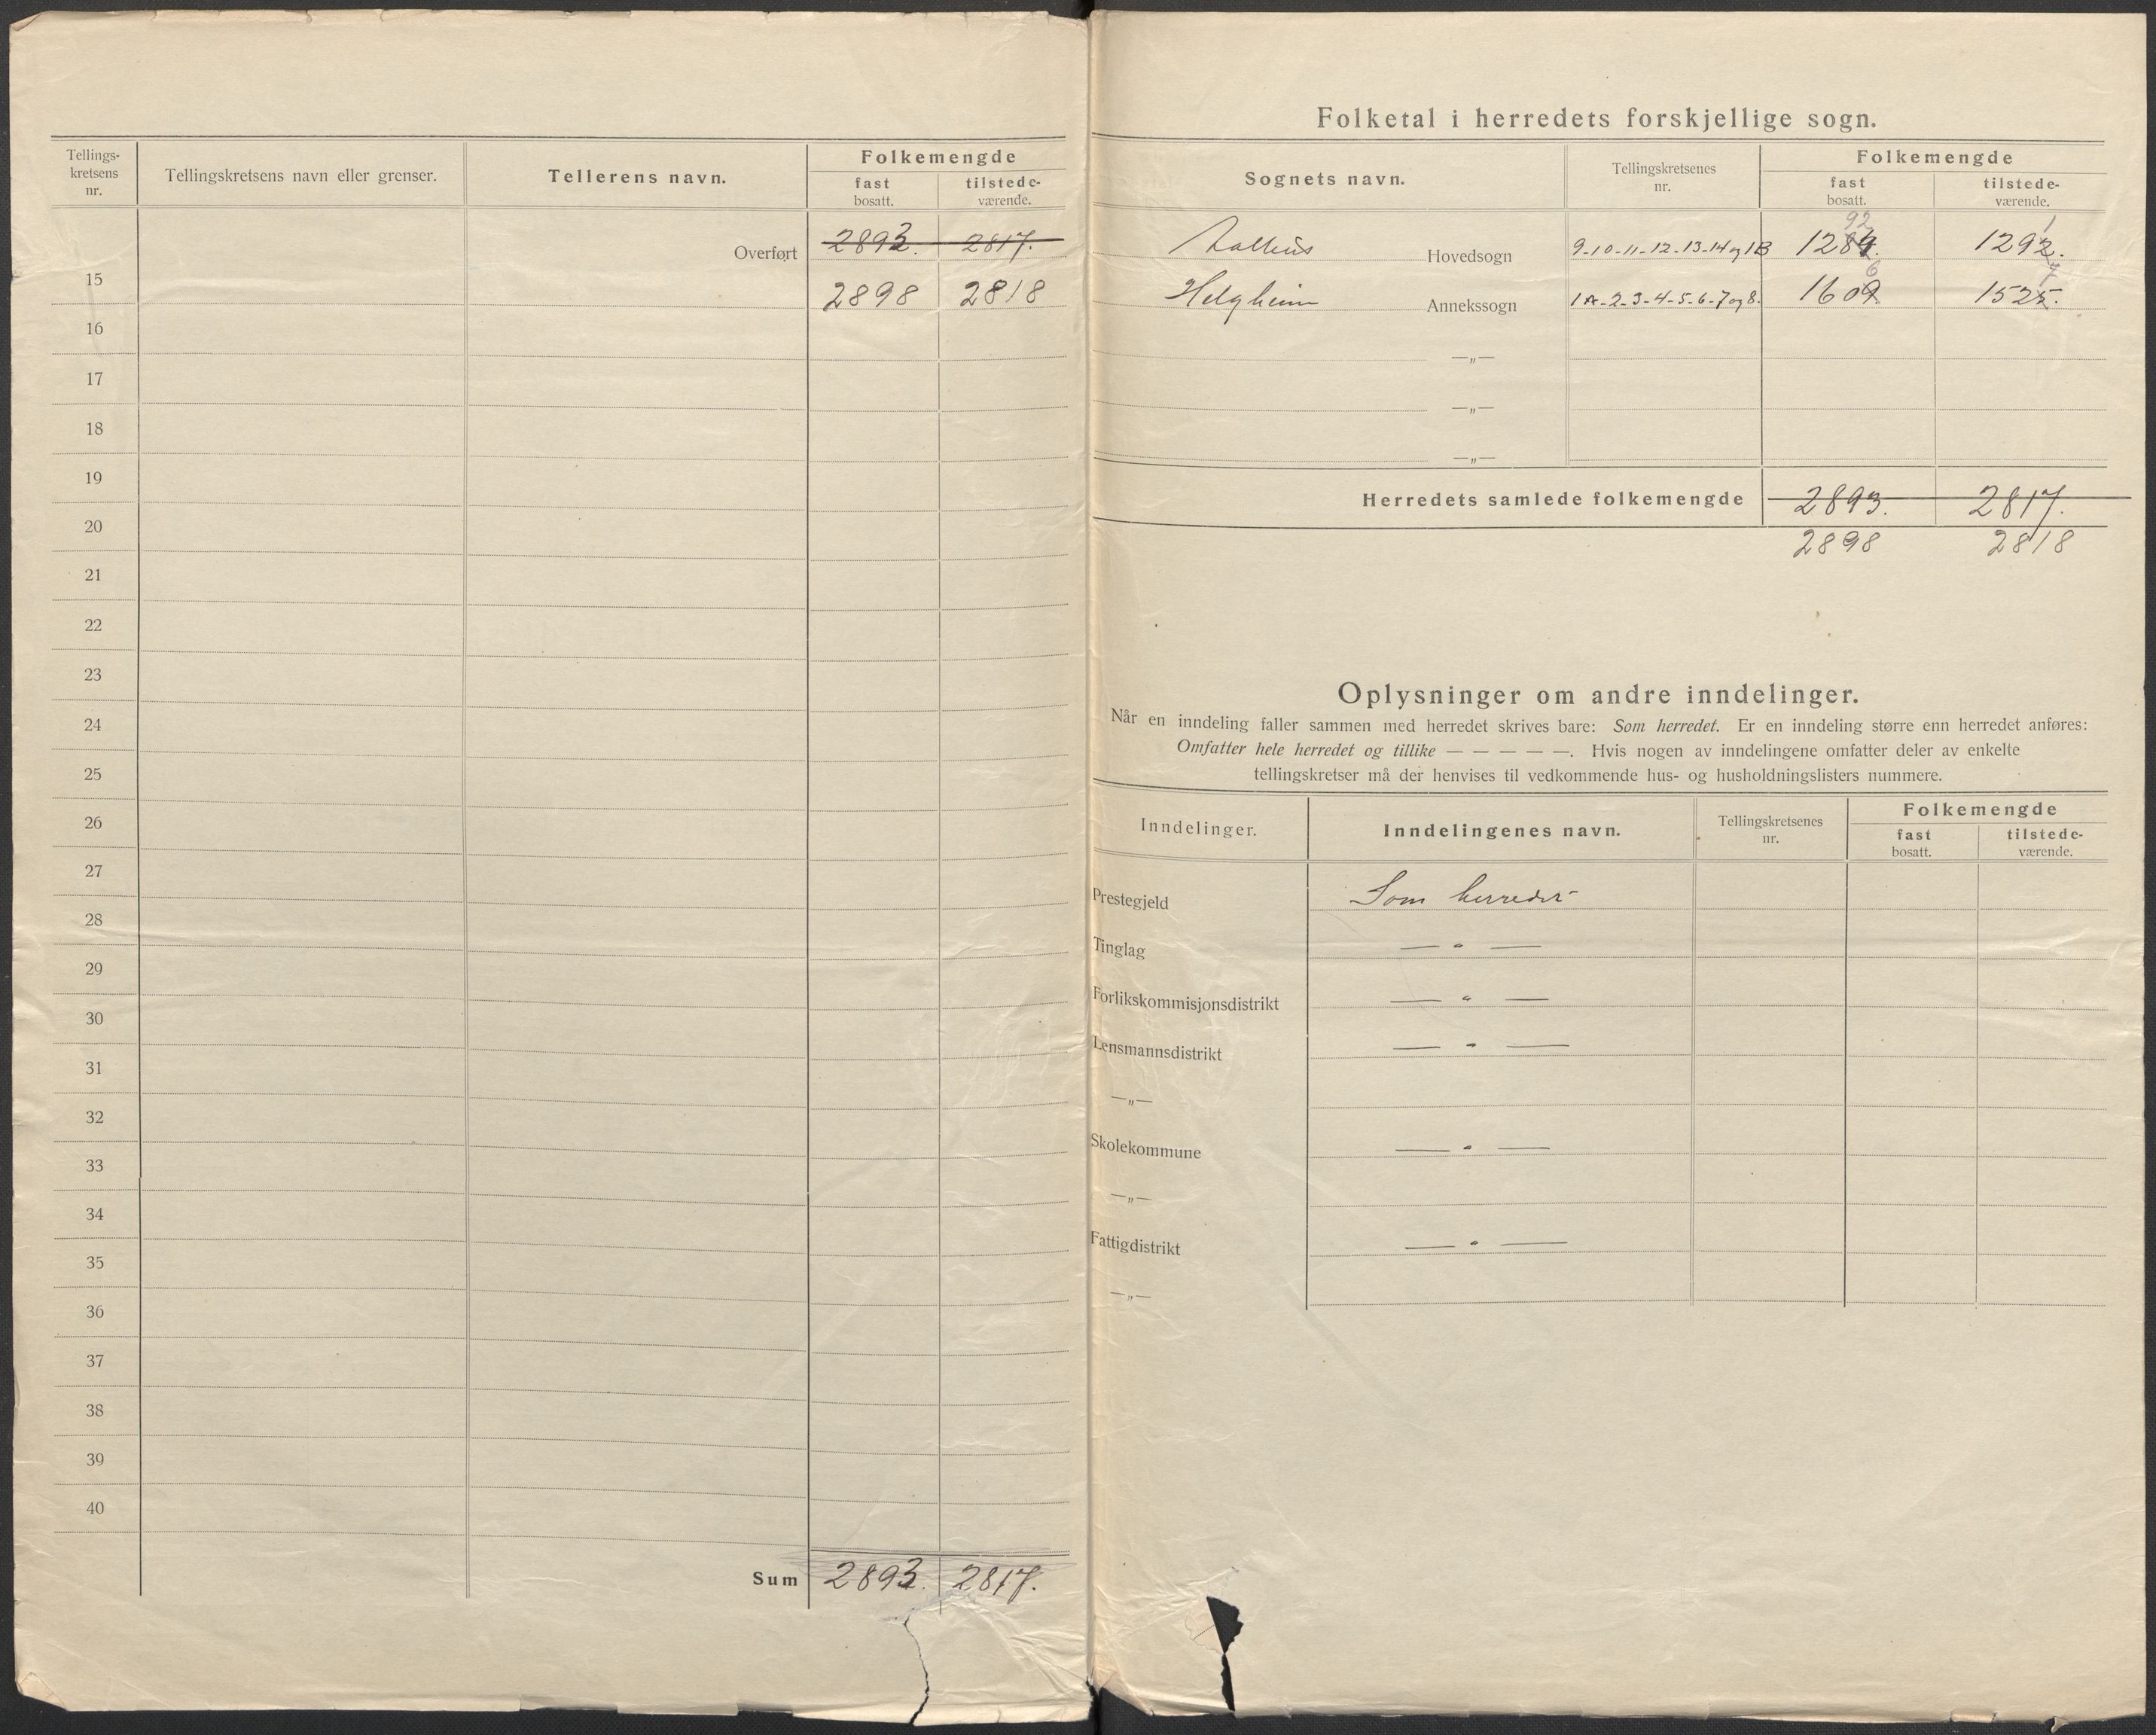 Tellings-
kretsens
nr.
Tellingskretsens navn eller grenser.
Tellerens navn.
Folkemengde
fast
bosatt.
tilstede-
værende.
Overført 2893. 2817.
15 2898 2818
16
17
18
19
20
21
22
23
24
25
26
27
28
29
30
31
32
33
34
35
36
37
38
39
40
Sum 2893. 2817.
Folketal i herredets forskjellige sogn.
Sognets navn.
Tellingskretsenes
nr.
Folkemengde
fast
bosatt.
tilstede-
værende.
92 1
Hovedsogn 9-10-11-12-13-14 og 1B 1284. 1292.
6 7
Helgheim Annekssogn 1A-2-3-4-5-6-7 og 8. 1609 1525.
—„—
—„—
—„—
Herredets samlede folkemengde 2893. 2817.
2898 2818
Oplysninger om andre inndelinger.
Når en inndeling faller sammen med herredet skrives bare: Som herredet. Er en inndeling større enn herredet anføres:
Omfatter hele herredet og tillike — — — — —. Hvis nogen av inndelingene omfatter deler av enkelte
tellingskretser må der henvises til vedkommende hus- og husholdningslisters nummere.
Inndelinger.
Inndelingenes navn.
Tellingskretsenes
nr.
Folkemengde
fast
bosatt.
tilstede-
værende.
Prestegjeld Som herredet
Tinglag — " —
Forlikskommisjonsdistrikt — " —
Lensmannsdistrikt — " —
—„—
Skolekommune — " —
—„—
Fattigdistrikt — " —
—„—